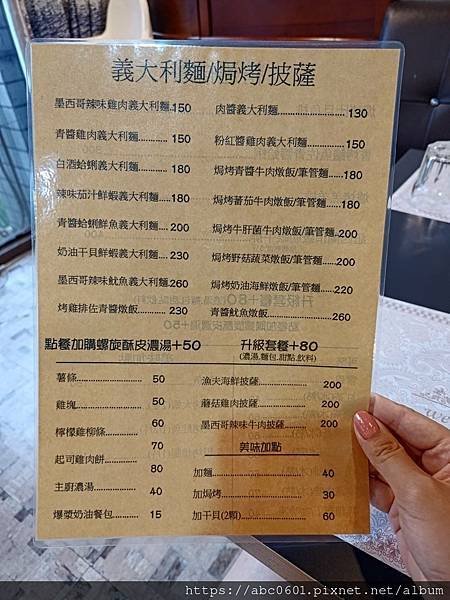 義大利麵/焗烤/披薩
墨西哥辣味雞肉義大利麵.150
青醬雞肉義大利麵............ 150
白酒蛤蜊義大利麵............180
辣味茄汁鮮蝦義大利麵...180
青醬蛤蜊鮮魚義大利麵...200
奶油干貝鮮蝦義大利麵...230
墨西哥辣味魷魚義大利麵260
烤雞排佐青醬燉飯..........230
肉醬義大利麵.................... 130
粉紅醬雞肉義大利麵............150
焗烤青醬牛肉燉飯/筆管麵....180
焗烤蕃茄牛肉燉飯/筆管麵...180
焗烤牛肝菌牛肉燉飯/筆管麵..200
焗烤野菇蔬菜燉飯/筆管麵....200
焗烤奶油海鮮燉飯/筆管麵...220
青醬魷魚燉飯....................260
點餐加購螺旋酥皮濃湯+50
升級套餐+80
(濃湯,麵包,甜點,飲料)
薯條...................... 50
雞塊...................... 50
檸檬雞柳條............ 60
起司雞肉餅............ 70
主廚濃湯................ 80
40
爆漿奶油餐包.......... 15
漁夫海鮮披薩............... 200
蘑菇雞肉披薩............... 200
墨西哥辣味牛肉披薩....... 200
美味加點
加麵........................ 40
加焗烤...................... 30
加干貝(2顆)................ 60
https://abc0601.pixnet.net/album